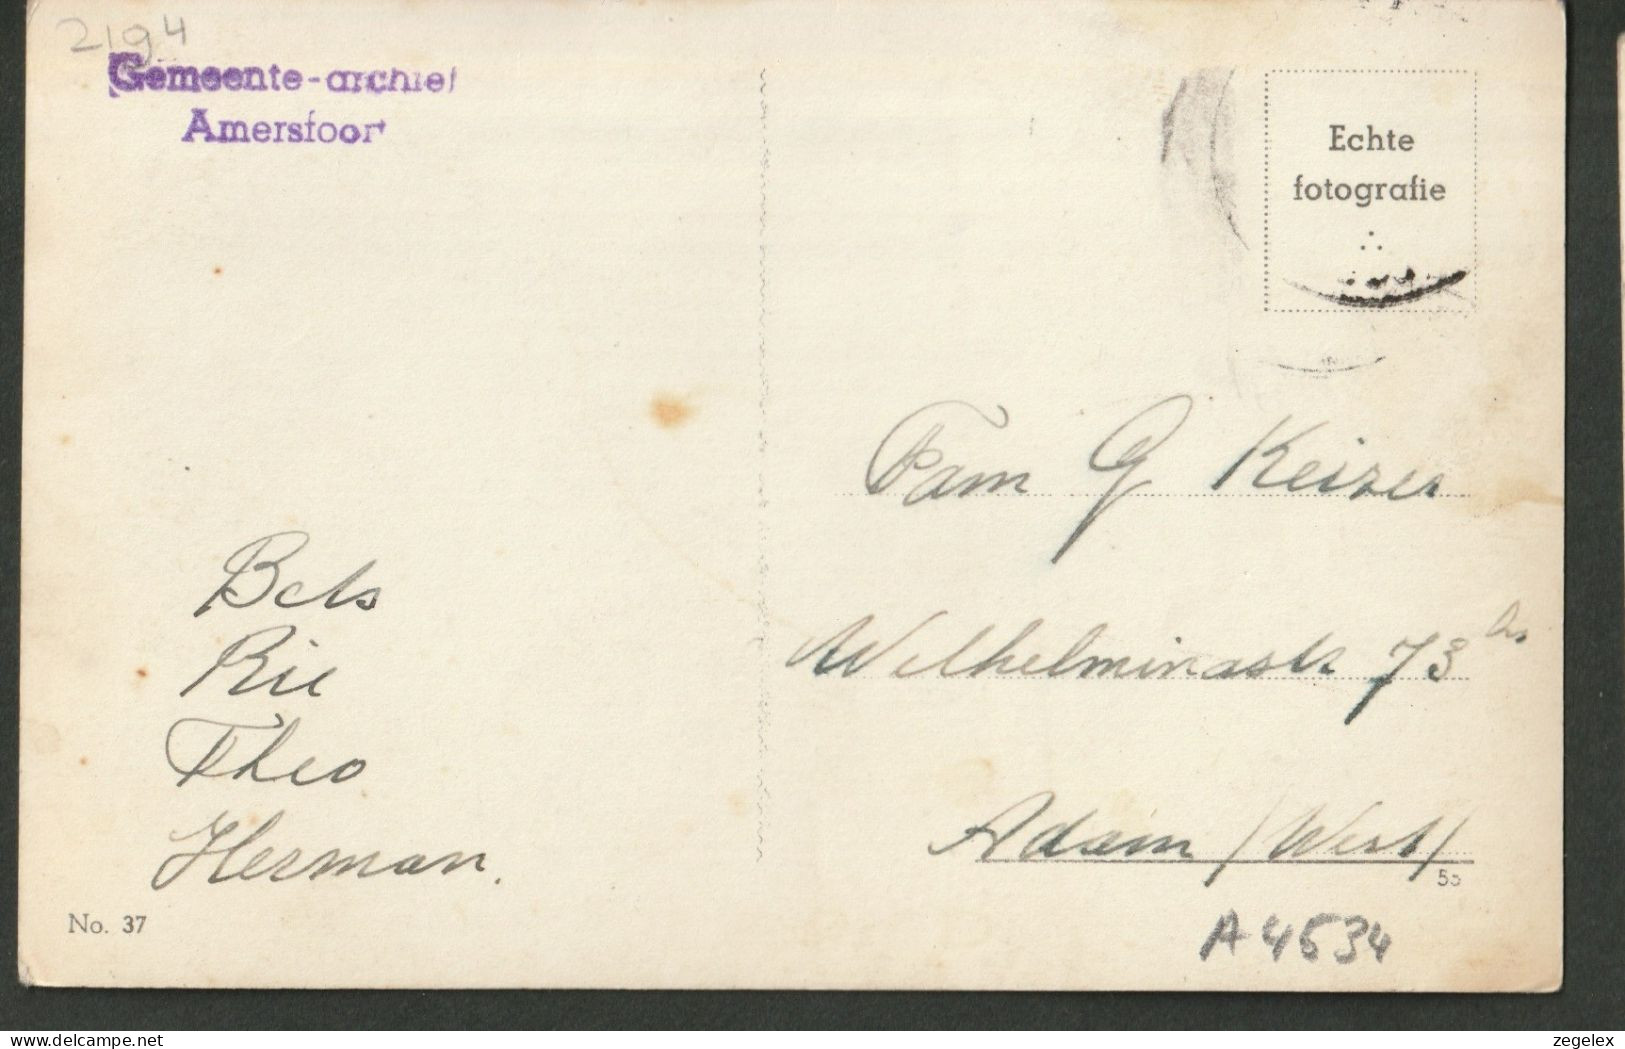 2194
Gemeente-archief
Amersfoort
Echte
fotografie
Fam G Keizer
Bets
Rie
Theo
Herman.
Wilhelminastr 73 hs
Adam (West)
55
No. 37
A 4534
delcampe.net
zegelex